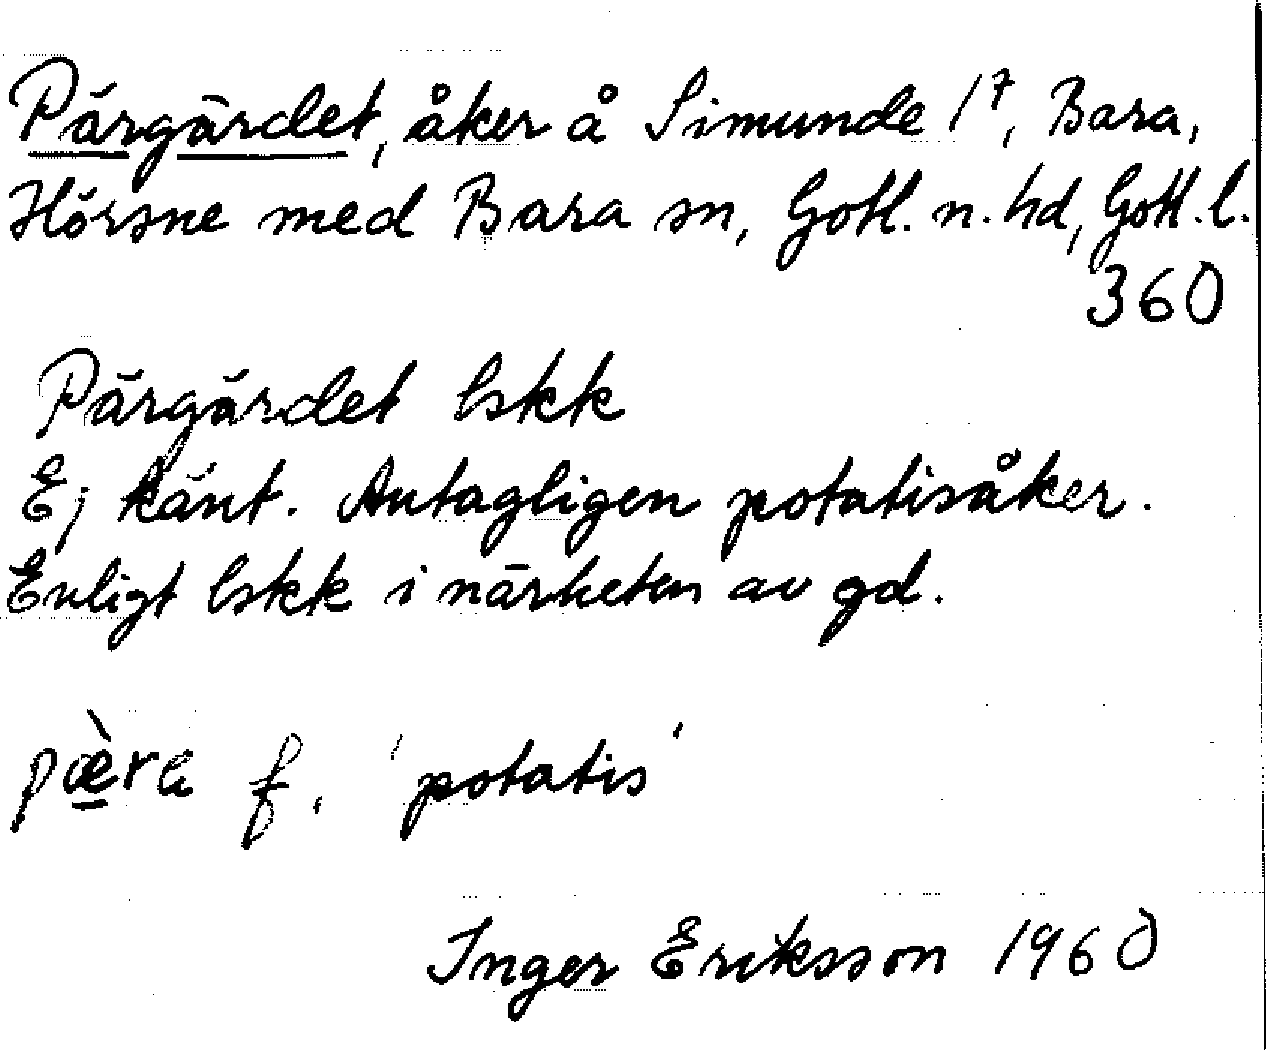 Pärgärdet, åker å Simunde 1⁷, Bara,
Hörsne med Bara sn, Gotl. n. hd, Gotl. l.
360
Pärgärdet lskk
Ej känt. Antagligen potatisåker.
Enligt lskk i närheten av gd.
pæ̱̀ra f. 'potatis'
Inger Eriksson 1960